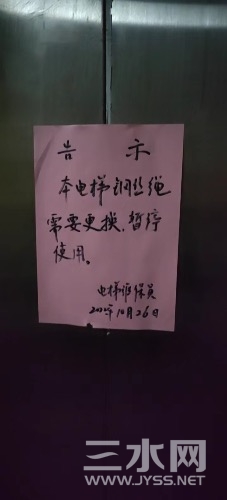 告示
本电梯钢丝绳
需要更换,暂停
使用。
电梯维保员
10月26日
三水网
WWW.JYSS.NET